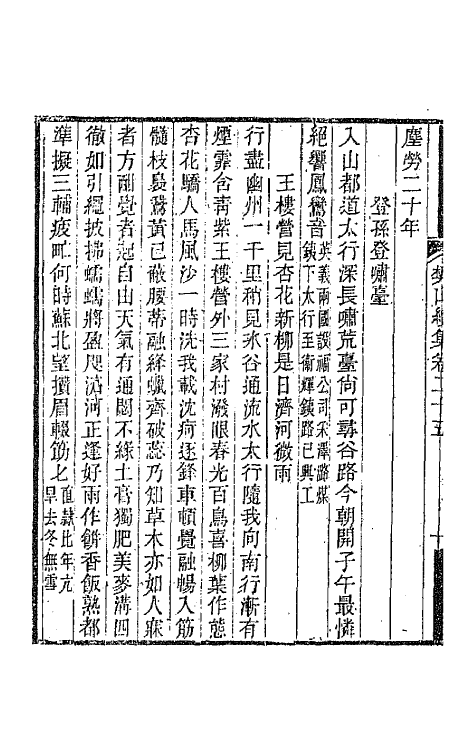 塵勞二十年
登孫登嘯臺
入山都道太行深長嘯荒臺尙可尋谷路今朝開子午最憐
絕響鳳鸞音英義兩國設福公司采澤潞煤鐵下太行至衞輝鐵路已興工
王樓營見杏花新柳是日濟河微雨
行盡幽州一千里稍見冰谷通流水太行隨我向南行漸有
煙霏含靑紫王樓營外三家村潑眼春光百鳥喜柳葉作態
杏花驕人馬風沙一時洗我載沈疴逐錄車頓覺融暢入筋
髓枝裊鵞黃已蔽腰蒂融絳蠟齊破蕊乃知草木亦如人寐
者方酣覺者起自山天氣有通閟不緣土膏獨肥美麥溝四
徹如引繩披拂蠕蠕將盈咫滳河正逢好雨作餠香飯熟都
準擬三輔疲甿何時蘇北望攢眉輟筋匕直隸比年亢旱去冬無雪
樊山續集卷二十五
十